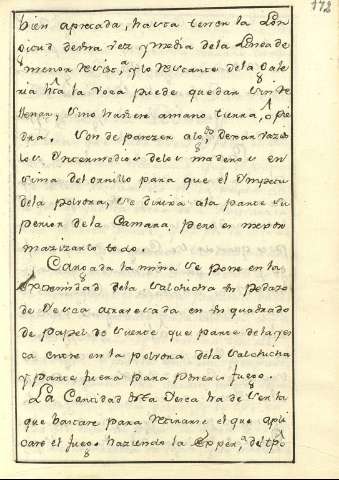 172
bien apretada, hasta tener la Lon
gitud de una vez y media de la Linea de
menor resist.ª y lo restante de la Gale
ria htã la voca puede quedar sin re
llenar, sino hubiere amano tierra, ô pie
dra. son de parezer alg.os dexar vazios
los Intermedios de los maderos en
sima del ornillo para que el Impetu
de la polvora, se dirixa ala parte su
perior de la Camara, pero es mexor
mazizarlo todo.
Cargada la mina se pone en la
extremidad de la salchicha Un pedazo
de Yesca atravesada en Un quadrado
de Papel de suerte que parte de la yes
ca entre en la polvora de la salchicha
y parte fuera para ponerle fuego.
La Cantidad de la Yesca ha de ser la
que bastare para retirarse el que apli
care el fuego haziendo la exper.ª del tpô